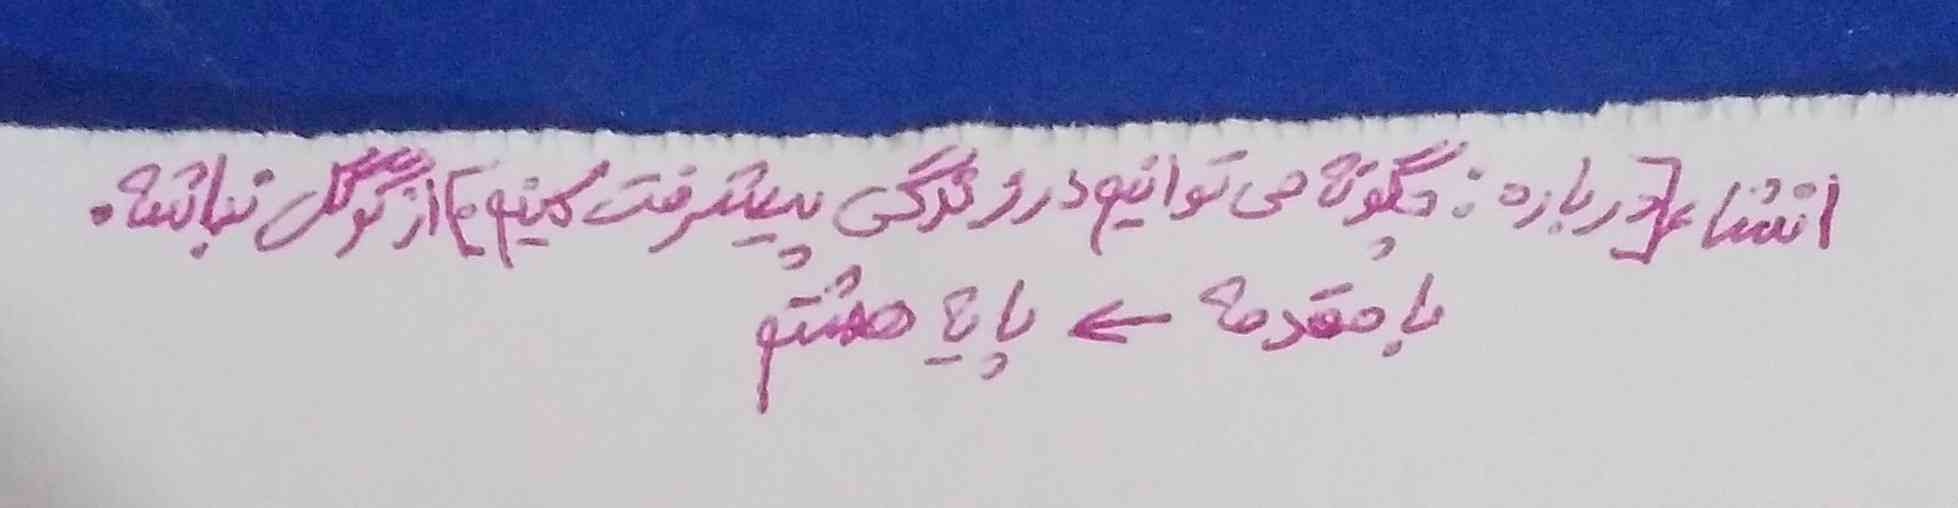 انشاء [درباره : چگونه می توانیم در زندگی پیشرفت کنیم] از گوگل نباشه.
با مقدمه ← پایه هشتم